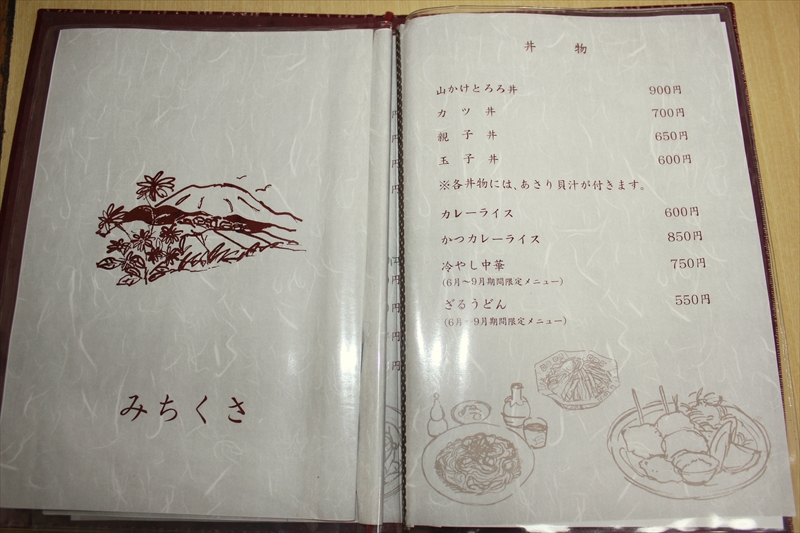 みちくさ
丼物
山かけとろろ丼 900円
カツ丼 700円
親子丼 650円
玉子丼 600円
※各丼物には、あさり貝汁が付きます。
カレーライス 600円
かつカレーライス 850円
冷やし中華 750円
(6月〜9月期間限定メニュー)
ざるうどん 550円
(6月〜9月期間限定メニュー)